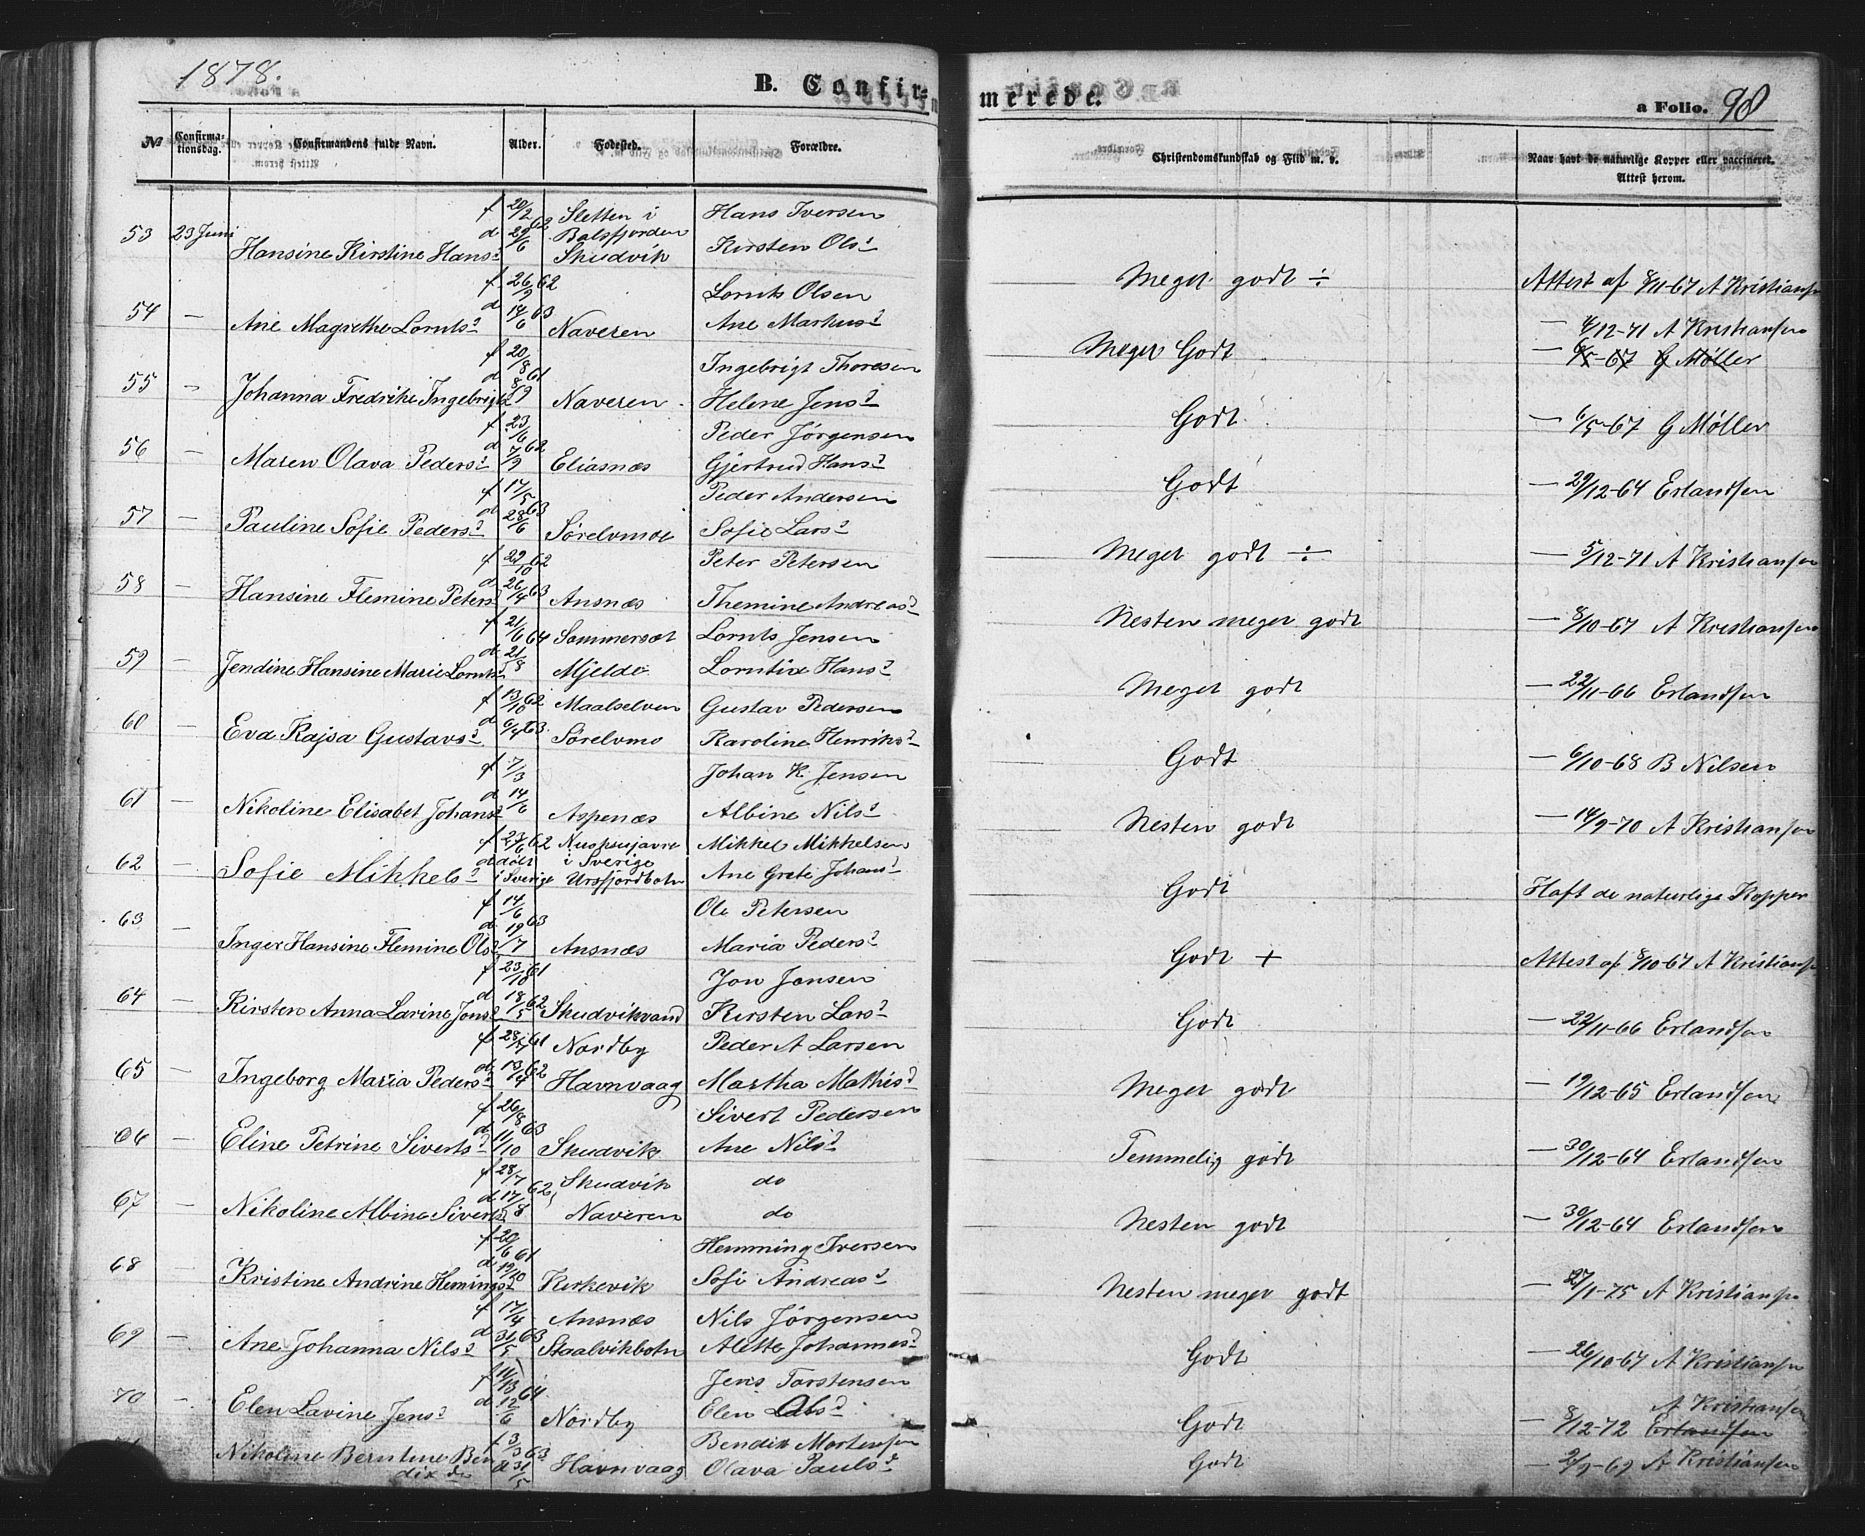 1878.
B. Confir-
merede.
a Folio. 98
№ Confirma-tionsdag. Confirmandens fulde Navn. Alder. Fødested. Forældre. Christendomskundskab og Flid m. v. Naar havt de naturlige Kopper eller vaccineret. Attest herom.
f 20/2 62 Sletten i Hans Iversen
53 23 Juni d 29/6 Balsfjorden
Hansine Kirstine Hansd Skudvik Kirsten Olsd Meget godt ÷ Attest af 8/11-67 A Kristiansen
f 26/9 62 Lornts Olsen
54 — d 14/6 63
Ane Magrethe Lorntsd Naveren Ane Markusd Meget Godt — 4/12-71 A Kristiansen
— 6/5-67 G Møller
f 20/8 61 Ingebrigt Thoresen
55 — d 8/9
Johanna Fredrike Ingebrigtsd Naveren Helene Jensd Godt — 6/5-67 G Møller
f 23/6 62 Peder Jørgensen
56 — d 7/9
Maren Olava Pedersd Eliasnæs Gjertrud Hansd Godt — 29/12-64 Erlandsen
f 17/5 63 Peder Andersen
57 — d 28/6
Pauline Sofie Pedersd Sørelvmoe Sofie Larsd Meget godt ÷ — 5/12-71 A Kristiansen
f 22/10 62 Peter Petersen
58 — d 26/4 63
Hansine Flemine Petersd Ansnæs Themine Andreasd Nesten meget godt — 8/10-67 A Kristiansen
f 21/6 64 Sommersæt Lornts Jensen
59 — d 21/8
Jendine Hansine Marie Lorntsd Mjelde Lorntine Hansd Meget godt — 22/11-66 Erlandsen
f 13/10 62 Maalselven Gustav Pedersen
60 — d 6/4 63
Eva Kajsa Gustavsd Sørelvmo Karoline Henriksd Godt — 6/10-68 B Nilsen
f 7/3 Johan K. Jensen
61 — d 14/6
Nikoline Elisabet Johansd Aspenæs Albine Nilsd Nesten godt — 14/9-70 A Kristiansen
f 23/6 62 Mikkel Mikkelsen
62 — d døbt i Sverige
Sofie Mikkelsd i Sverige Ursfjordbotn Ane Grete Johansd Godt Haft de naturlige Kopper
f 14/6 63 Ole Petersen
63 — d 19/7
Inger Hansine Flemine Olsd Ansnæs Maria Pedersd Godt + Attest af 8/10-67 A Kristiansen
f 23/10 61 Jon Jonsen
64 — d 18/5 62
Kirsten Anna Lavine Jonsd Skudvikvand Kirsten Larsd Godt — 22/11-66 Erlandsen
f 61 Nordby Peder A Larsen
65 — d 13/4 62
Ingeborg Maria Pedersd Havnvaag Martha Mathisd Meget godt — 19/12-65 Erlandsen
f 26/8 63 Sivert Pedersen
66 — d 11/10
Eline Petrine Sivertsd Skudvik Ane Nilsd Temmelig godt — 30/12-64 Erlandsen
f 28/7 62 Skudvik do
67 — d 17/8
Nikoline Albine Sivertsd Naveren do Nesten godt — 30/12-64 Erlandsen
f 20/6 61 Hemming Iversen
68 — d 19/10
Kristine Andrine Hemingsd Kirkevik Sofi Andreasd Nesten meget godt — 27/11-75 A Kristiansen
f 17/4 63 Ansnæs Nils Jørgensen
69 — d 31/5
Ane Johanna Nilsd Staalvikbotn Alette Johannesd Godt — 26/10-67 A Kristiansen
f 64 Jens Torstensen
70 — d 12/6 A Kristiansen
Elen Lavine Jensd Nordby Elen Godt — 8/12-72 Erlandsen
f 3/3 63 Bendix Mortensen
Nikoline Berntene Ben Godt — 2/9-69 A Kristiansen
dixd d 31/5 Havnvaag Olava Paulsd